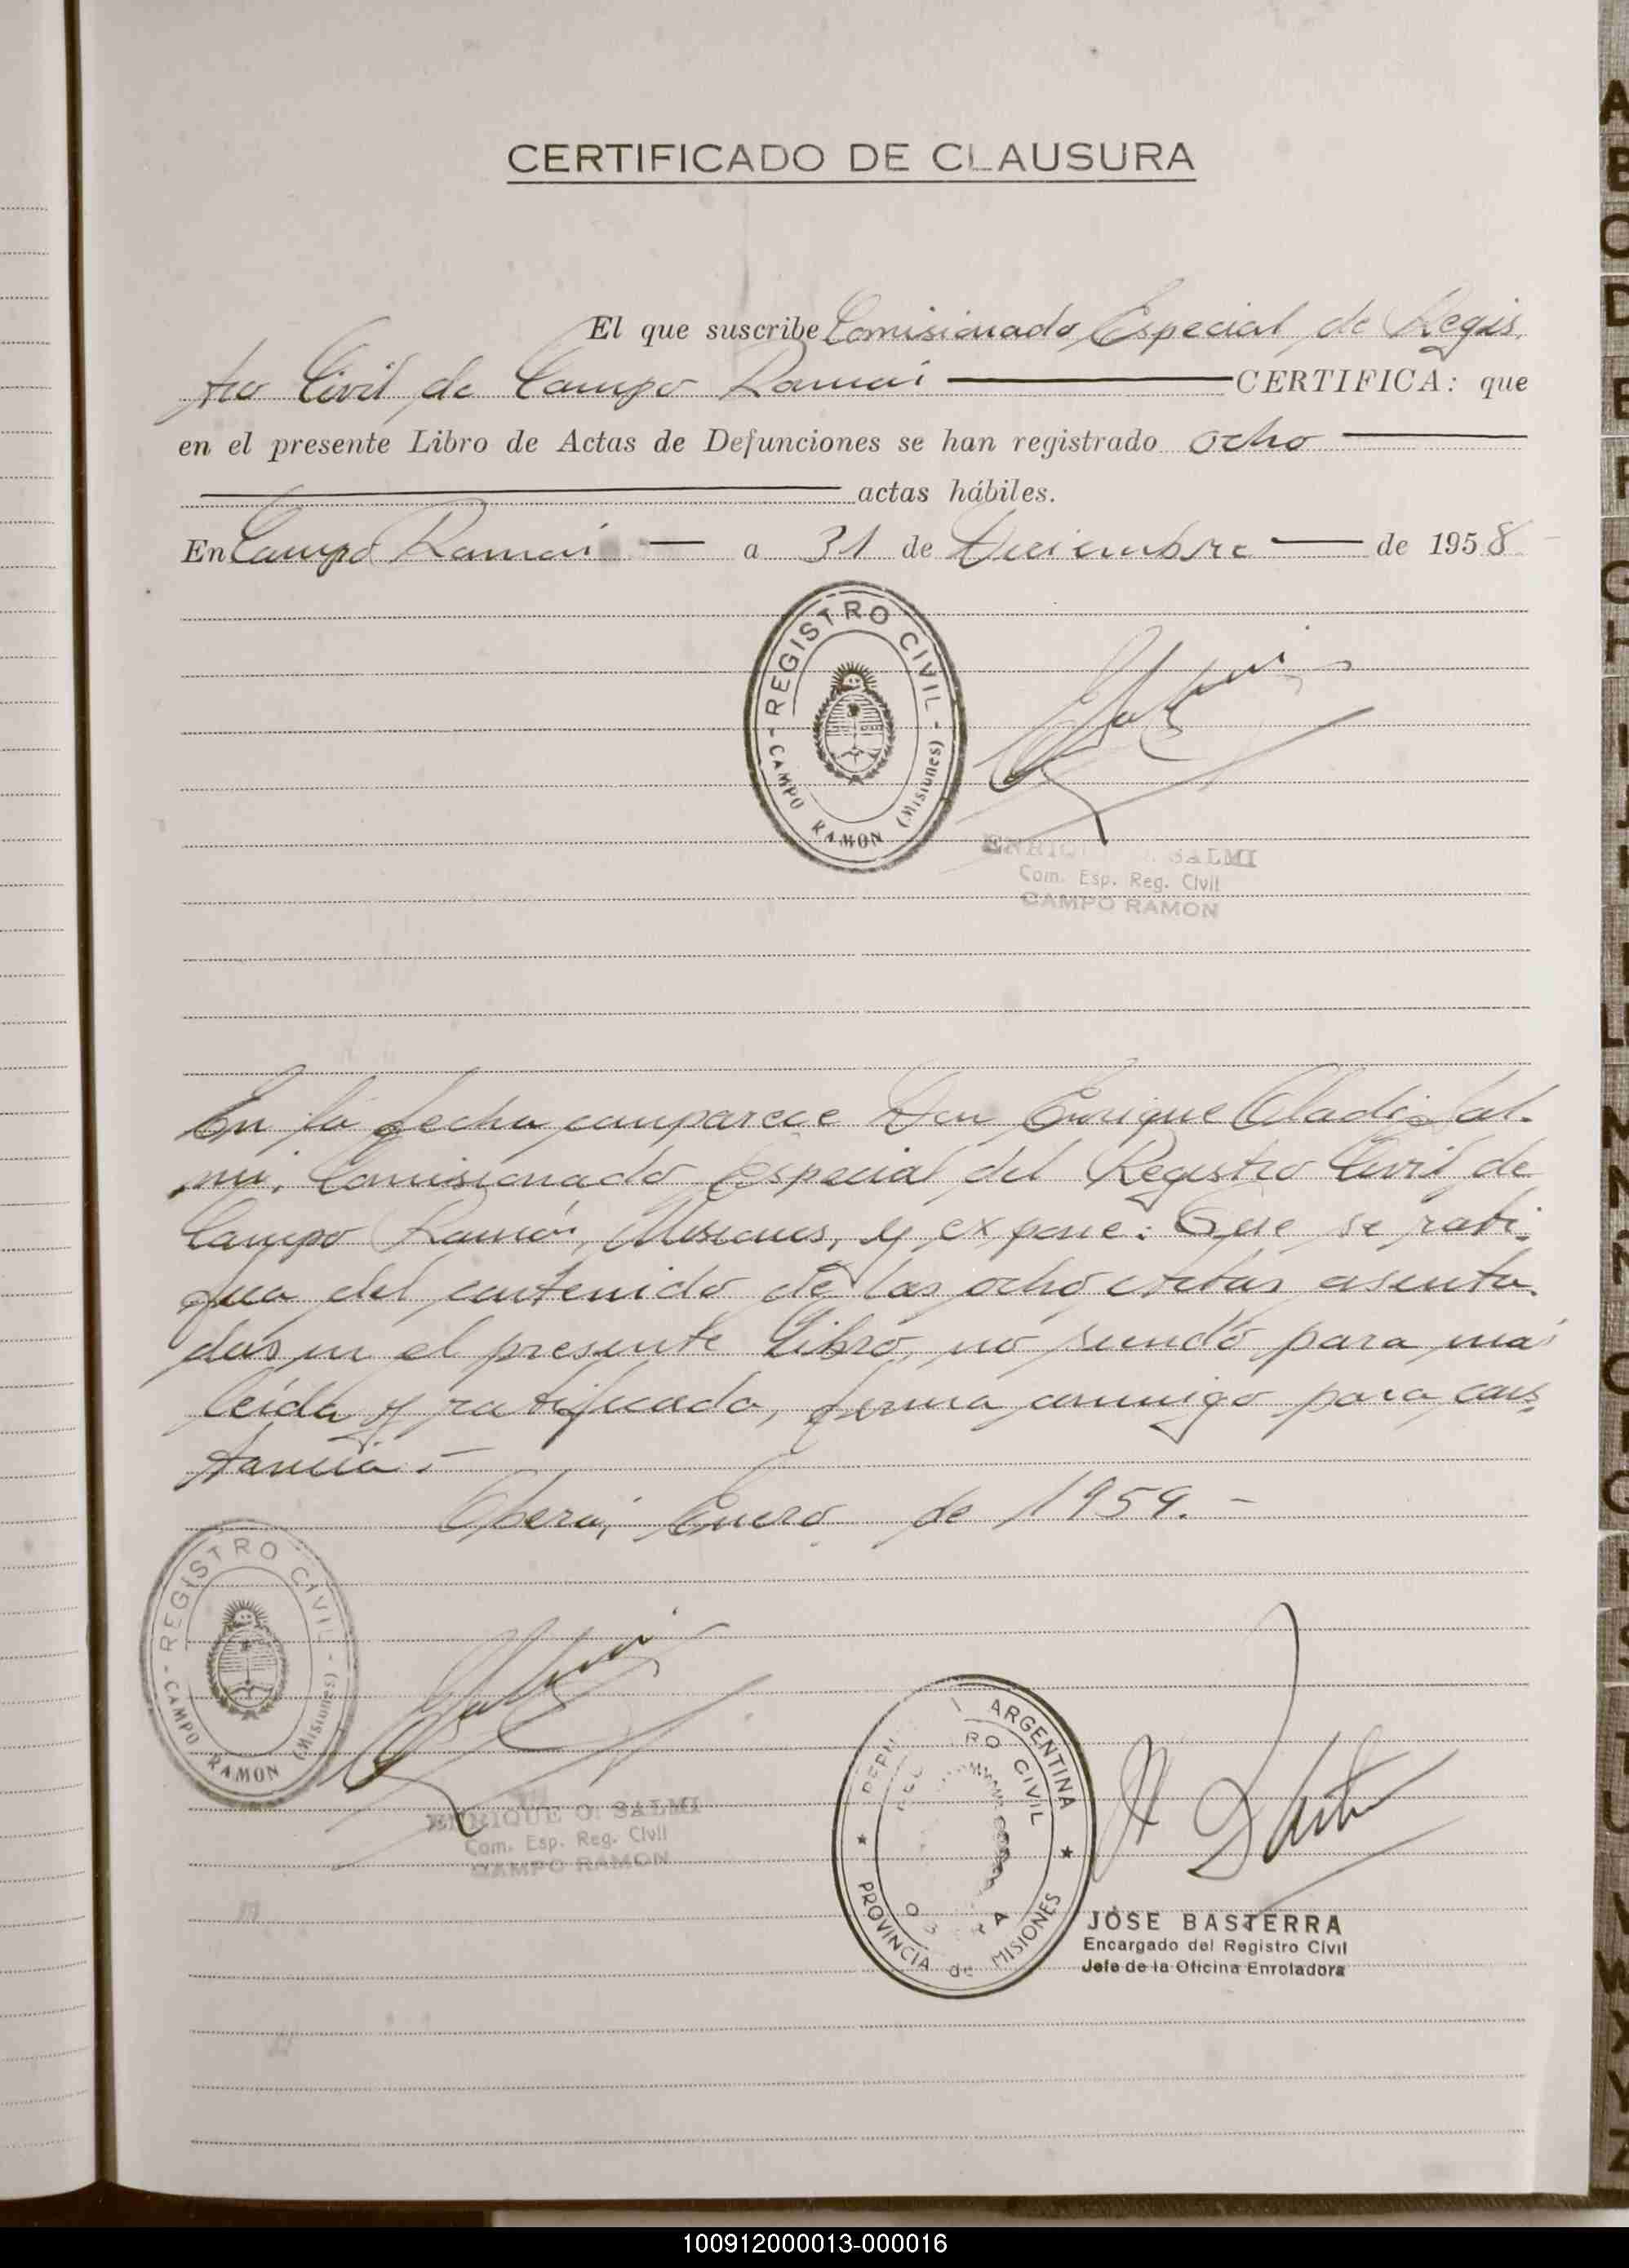 CERTIFICADO DE CLAUSURA
El que suscribe Comisionado Especial de Regis
tro Civil de Campo Ramón CERTIFICA: que
en el presente Libro de Actas de Defunciones se han registrado ocho
actas hábiles.
En Campo Ramón a 31 de Diciembre de 1958
REGISTRO CIVIL
CAMPO RAMON (Misiones)
ENRIQ SALMI
Com. Esp. Reg. Civil
CAMPO RAMON
En la fecha comparece Don Enrique Sal-
mi, Comisionado Especial del Registro Civil de
Campo Ramón, Misiones, y expone: Que se rati-
fica del contenido de las ocho actas asenta-
das en el presente Libro, no siendo para más
leída y ratificada, firma conmigo para cons-
tancia.-
Oberá, Enero de 1959.-
REGISTRO CIVIL
CAMPO RAMON (Misiones)
ENRIQUE O. SALMI
Com. Esp. Reg. Civil
CAMPO RAMON
ARGENTINA
RO CIVIL
PROVINCIA de MISIONES
JOSE BASTERRA
Encargado del Registro Civil
Jefe de la Oficina Enroladora
A
B
C
D
E
F
G
H
I
J
K
L
M
N
Ñ
O
P
Q
R
S
T
U
V
W
X
Y
Z
100912000013-000016